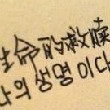 生命的救贖
나의 생명이다